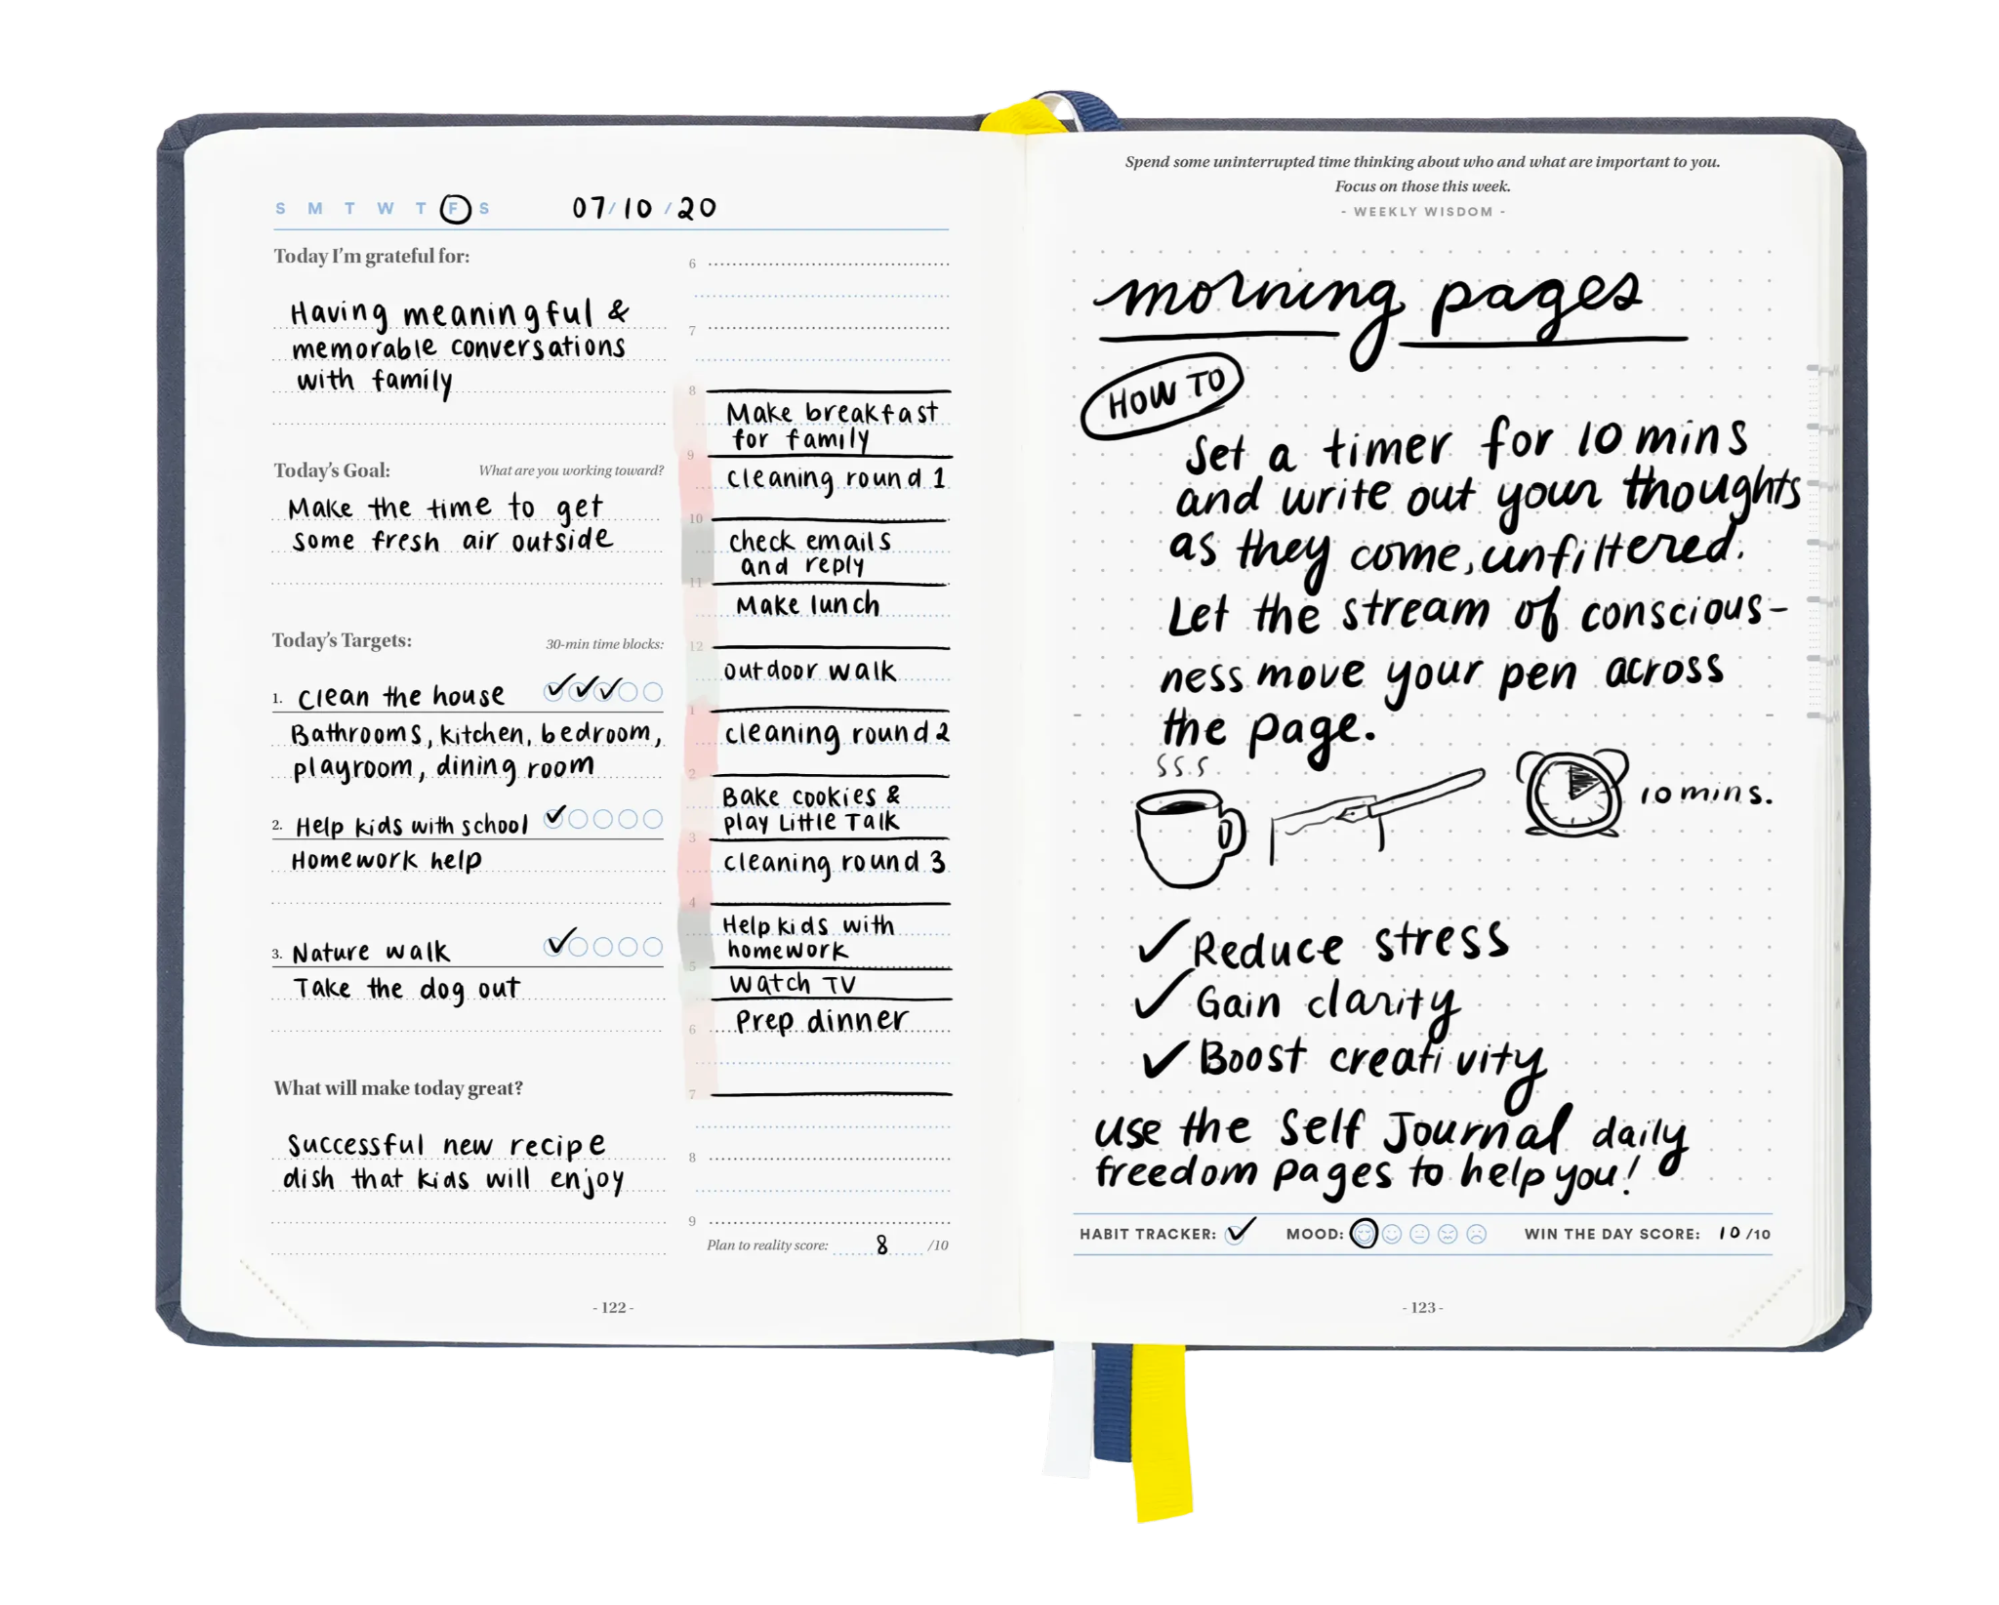 S M T W T F S 07/10/20
Today I'm grateful for:
Having meaningful &
memorable conversations
with family
Today's Goal: What are you working toward?
Make the time to get
some fresh air outside
Today's Targets: 30-min time blocks:
1. Clean the house
Bathrooms, kitchen, bedroom,
playroom, dining room
2. Help kids with school
Homework help
3. Nature walk
Take the dog out
What will make today great?
Successful new recipe
dish that kids will enjoy
6
7
8
Make breakfast
for family
9
cleaning round 1
10
check emails
and reply
11
Make lunch
12
outdoor walk
1
cleaning round 2
2
Bake cookies &
play Little Talk
3
cleaning round 3
4
Help kids with
homework
5
Watch TV
6 Prep dinner
7
8
9
Plan to reality score: 8 /10
- 122 -
Spend some uninterrupted time thinking about who and what are important to you.
Focus on those this week.
- WEEKLY WISDOM -
morning pages
HOW TO
Set a timer for 10 mins
and write out your thoughts
as they come, unfiltered.
Let the stream of conscious-
ness move your pen across
the page.
sss
10 mins.
Reduce stress
Gain clarity
Boost creativity
use the Self Journal daily
freedom pages to help you!
HABIT TRACKER: MOOD: WIN THE DAY SCORE: 10/10
- 123 -